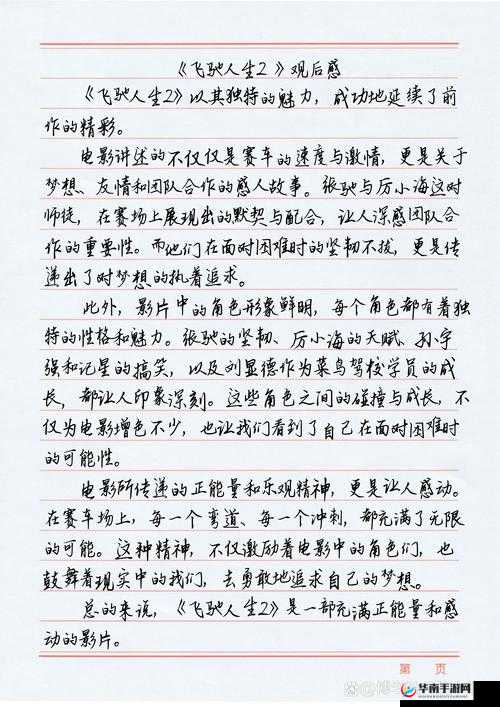 《飞驰人生2》观后感
《飞驰人生2》以其独特的魅力，成功地延续了前
作的精彩。
电影讲述的不仅仅是赛车的速度与激情，更是关于
梦想、友情和团队合作的感人故事。张驰与厉小海这对
师徒，在赛场上展现出的默契与配合，让人深感团队合
作的重要性。而他们在面对困难时的坚韧不拔，更是传
递出了对梦想的执着追求。
此外，影片中的角色形象鲜明，每个角色都有着独
特的性格和魅力。张驰的坚韧、厉小海的天赋、孙宇
强和记星的搞笑，以及刘显德作为菜鸟驾校学员的成
长，都让人印象深刻。这些角色之间的碰撞与成长，不
仅为电影增色不少，也让我们看到了自己在面对困难时
的可能性。
电影所传递的正能量和乐观精神，更是让人感动。
在赛车场上，每一个弯道、每一个冲刺，都充满了无限
的可能。这种精神，不仅激励着电影中的角色们，也
鼓舞着现实中的我们，去勇敢地追求自己的梦想。
总的来说，《飞驰人生2》是一部充满正能量和感
动的影片。
第 页
华南手游网